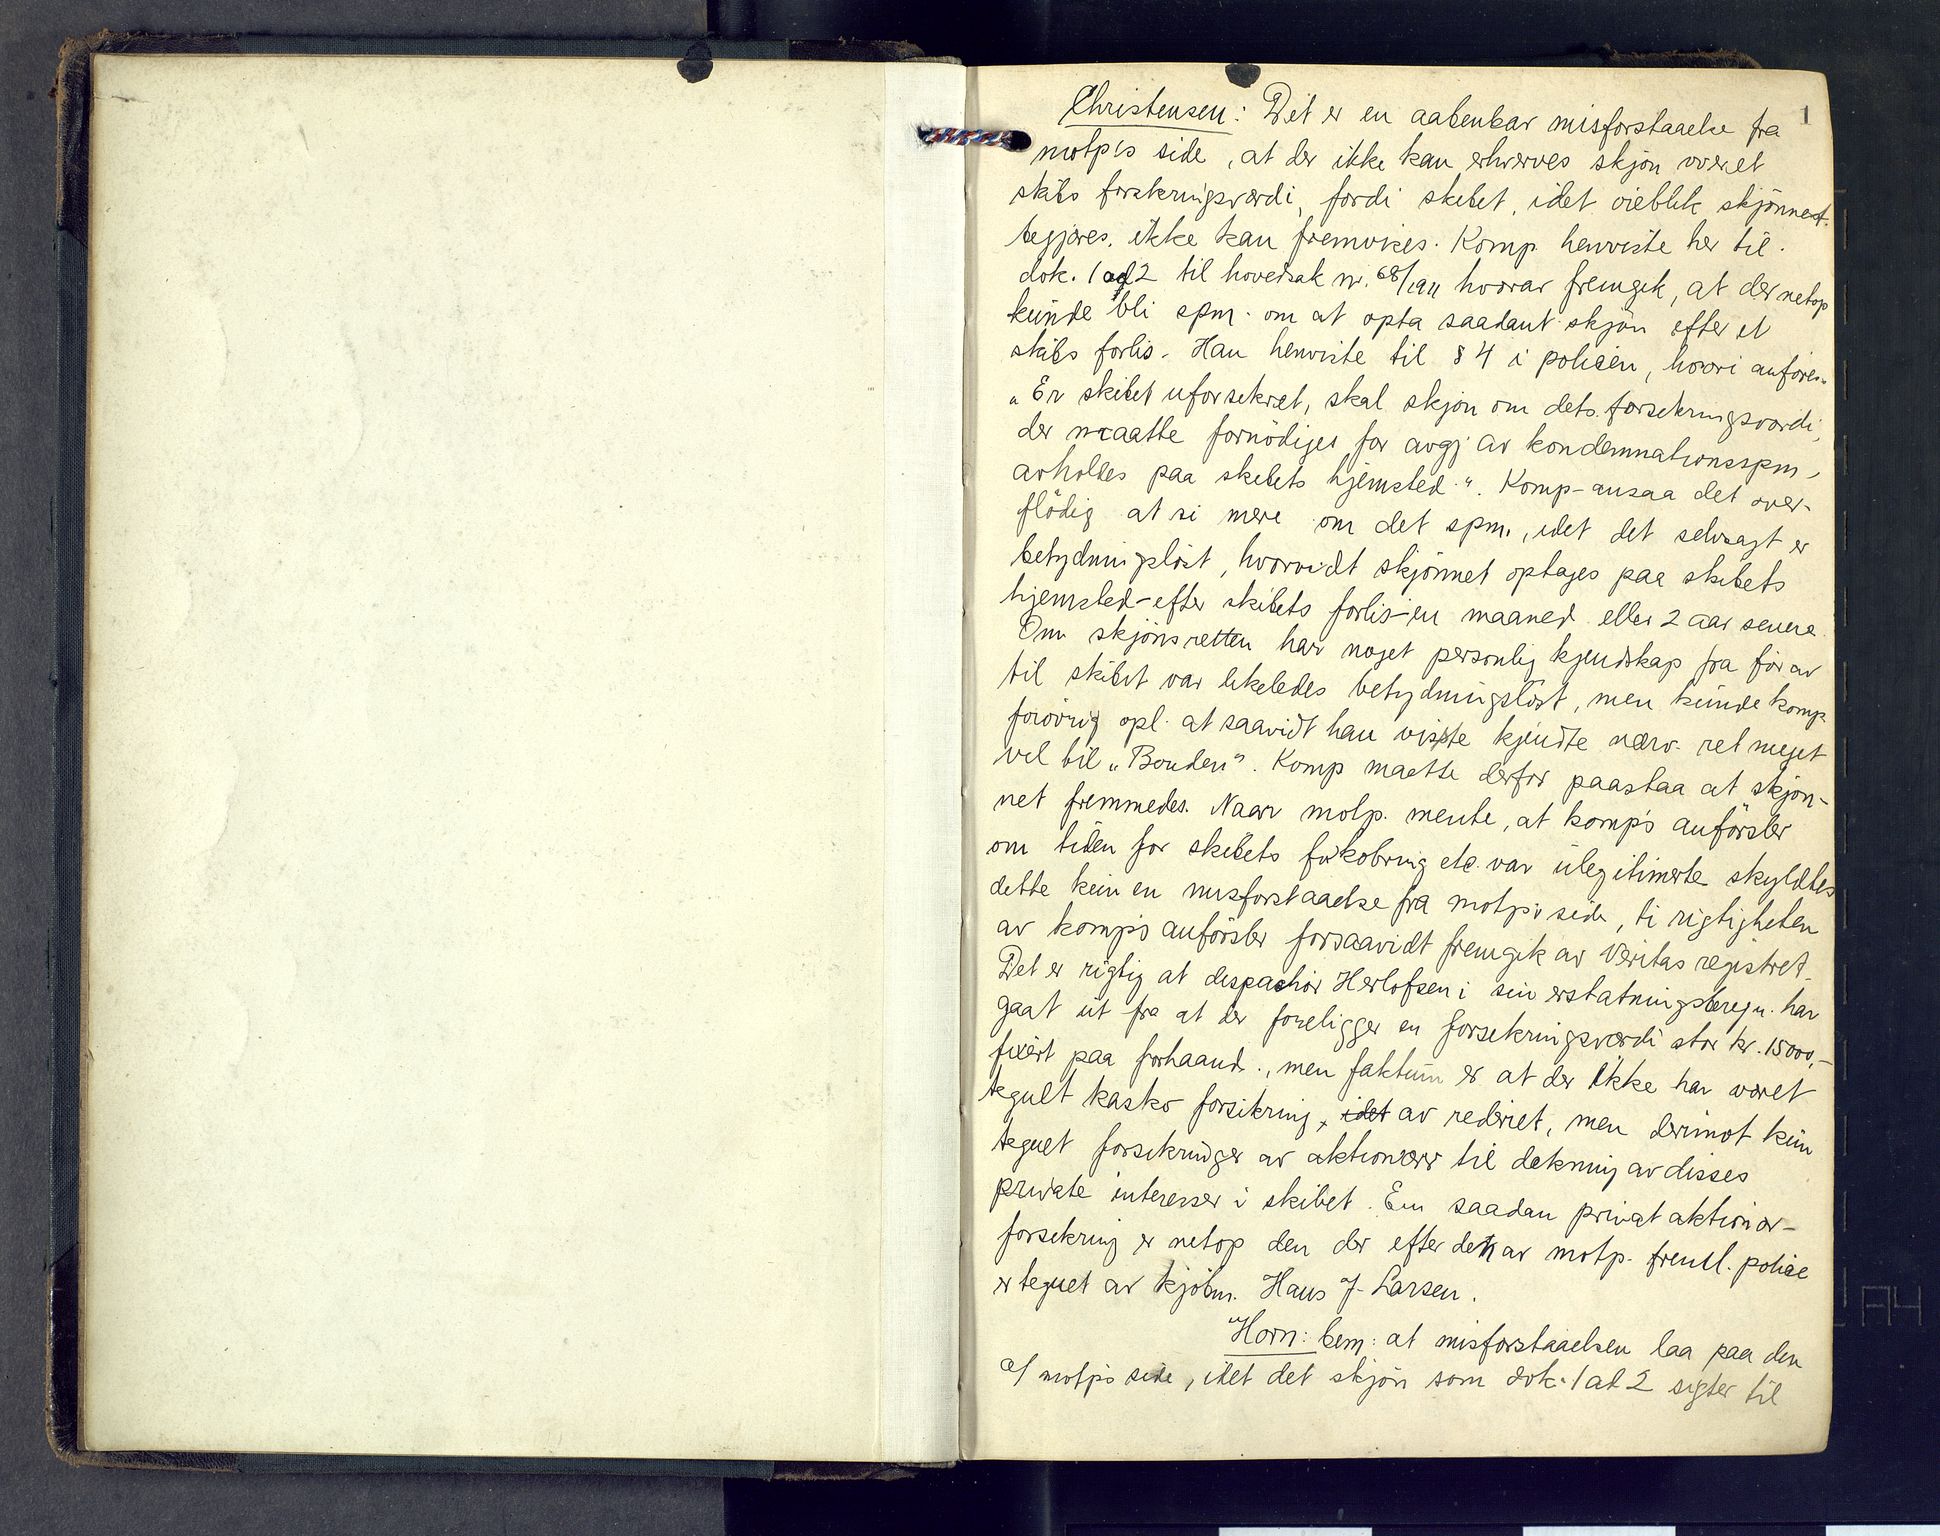 1
Christensen: Det er en aabenbar misforstaaelse fra
motp's side, at der ikke kan erhverves skjøn over et
skibs forsikringsværdi, fordi skibet, idet øieblik skjønnet
begjæres, ikke kan fremvises. Komp. henviste her til
dok. 1 ad 2 til hovedsak nr. 68/1911 hvorav fremgik, at der netop
kunde bli spm. om at opta saadant skjøn efter et
skibs forlis. Han henviste til § 4 i policen, hvori anføres
"Er skibet uforsikret, skal skjøn om dets forsikringsværdi,
der maatte fornødiges for avgj. av kondemnationsspm,
avholdes paa skibets hjemsted." Komp. ansaa det over-
flødig at si mere om det spm., idet det selvsagt er
betydningsløst, hvorvidt skjønnet optages paa skibets
hjemsted - efter skibets forlis - en maaned eller 2 aar senere.
Om skjønsretten har noget personlig kjendskap fra før av
til skibet var likeledes betydningsløst, men kunde komp
forøvrig opl. at saavidt han visste kjendte nærv. ret meget
vel til "Bonden". Komp maatte derfor paastaa at skjøn-
net fremmedes. Naar motp. mente, at komp's anførsler
om tiden for skibets forkobring etc. var ulegitimerte skyldtes
dette kun en misforstaaelse fra motp's side, ti rigtigheten
av komp's anførsler forsaavidt fremgik av Veritas registret.
Det er rigtig at dispachør Herlofsen i sin erstatningsberegn. har
gaat ut fra at der foreligger en forsikringsværdi stor kr. 15000,-
fixert paa forhaand., men faktum er at der ikke har været
tegnet kasko forsikring, idet av rederiet, men derimot kun
tegnet forsikringer av aktionærer til dekning av disses
private interesser i skibet. En saadan privat aktionær-
forsikring er netop den der efter den av motp. freml. police
er tegnet av kjøbm. Hans J. Larsen.
Horn: bem: at misforstaaelsen laa paa den
motp's side, idet det skjøn som dok. 1 ad 2 sigter til